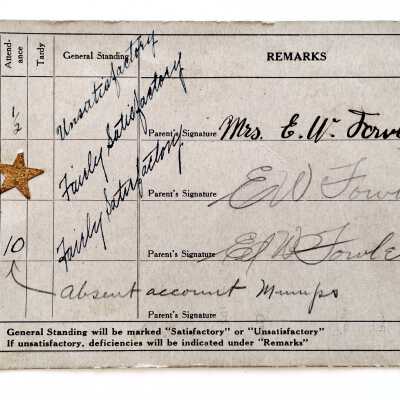 Attend-
ance
Tardy
General Standing
REMARKS
1/2
Unsatisfactory
Parent's Signature
Mrs. E. W. Fowle
Fairly Satisfactory
Parent's Signature
E W Fowle
10
Fairly Satisfactory
Parent's Signature
E W Fowle
Absent account Mumps
Parent's Signature
General Standing will be marked "Satisfactory" or "Unsatisfactory"
If unsatisfactory, deficiencies will be indicated under "Remarks"